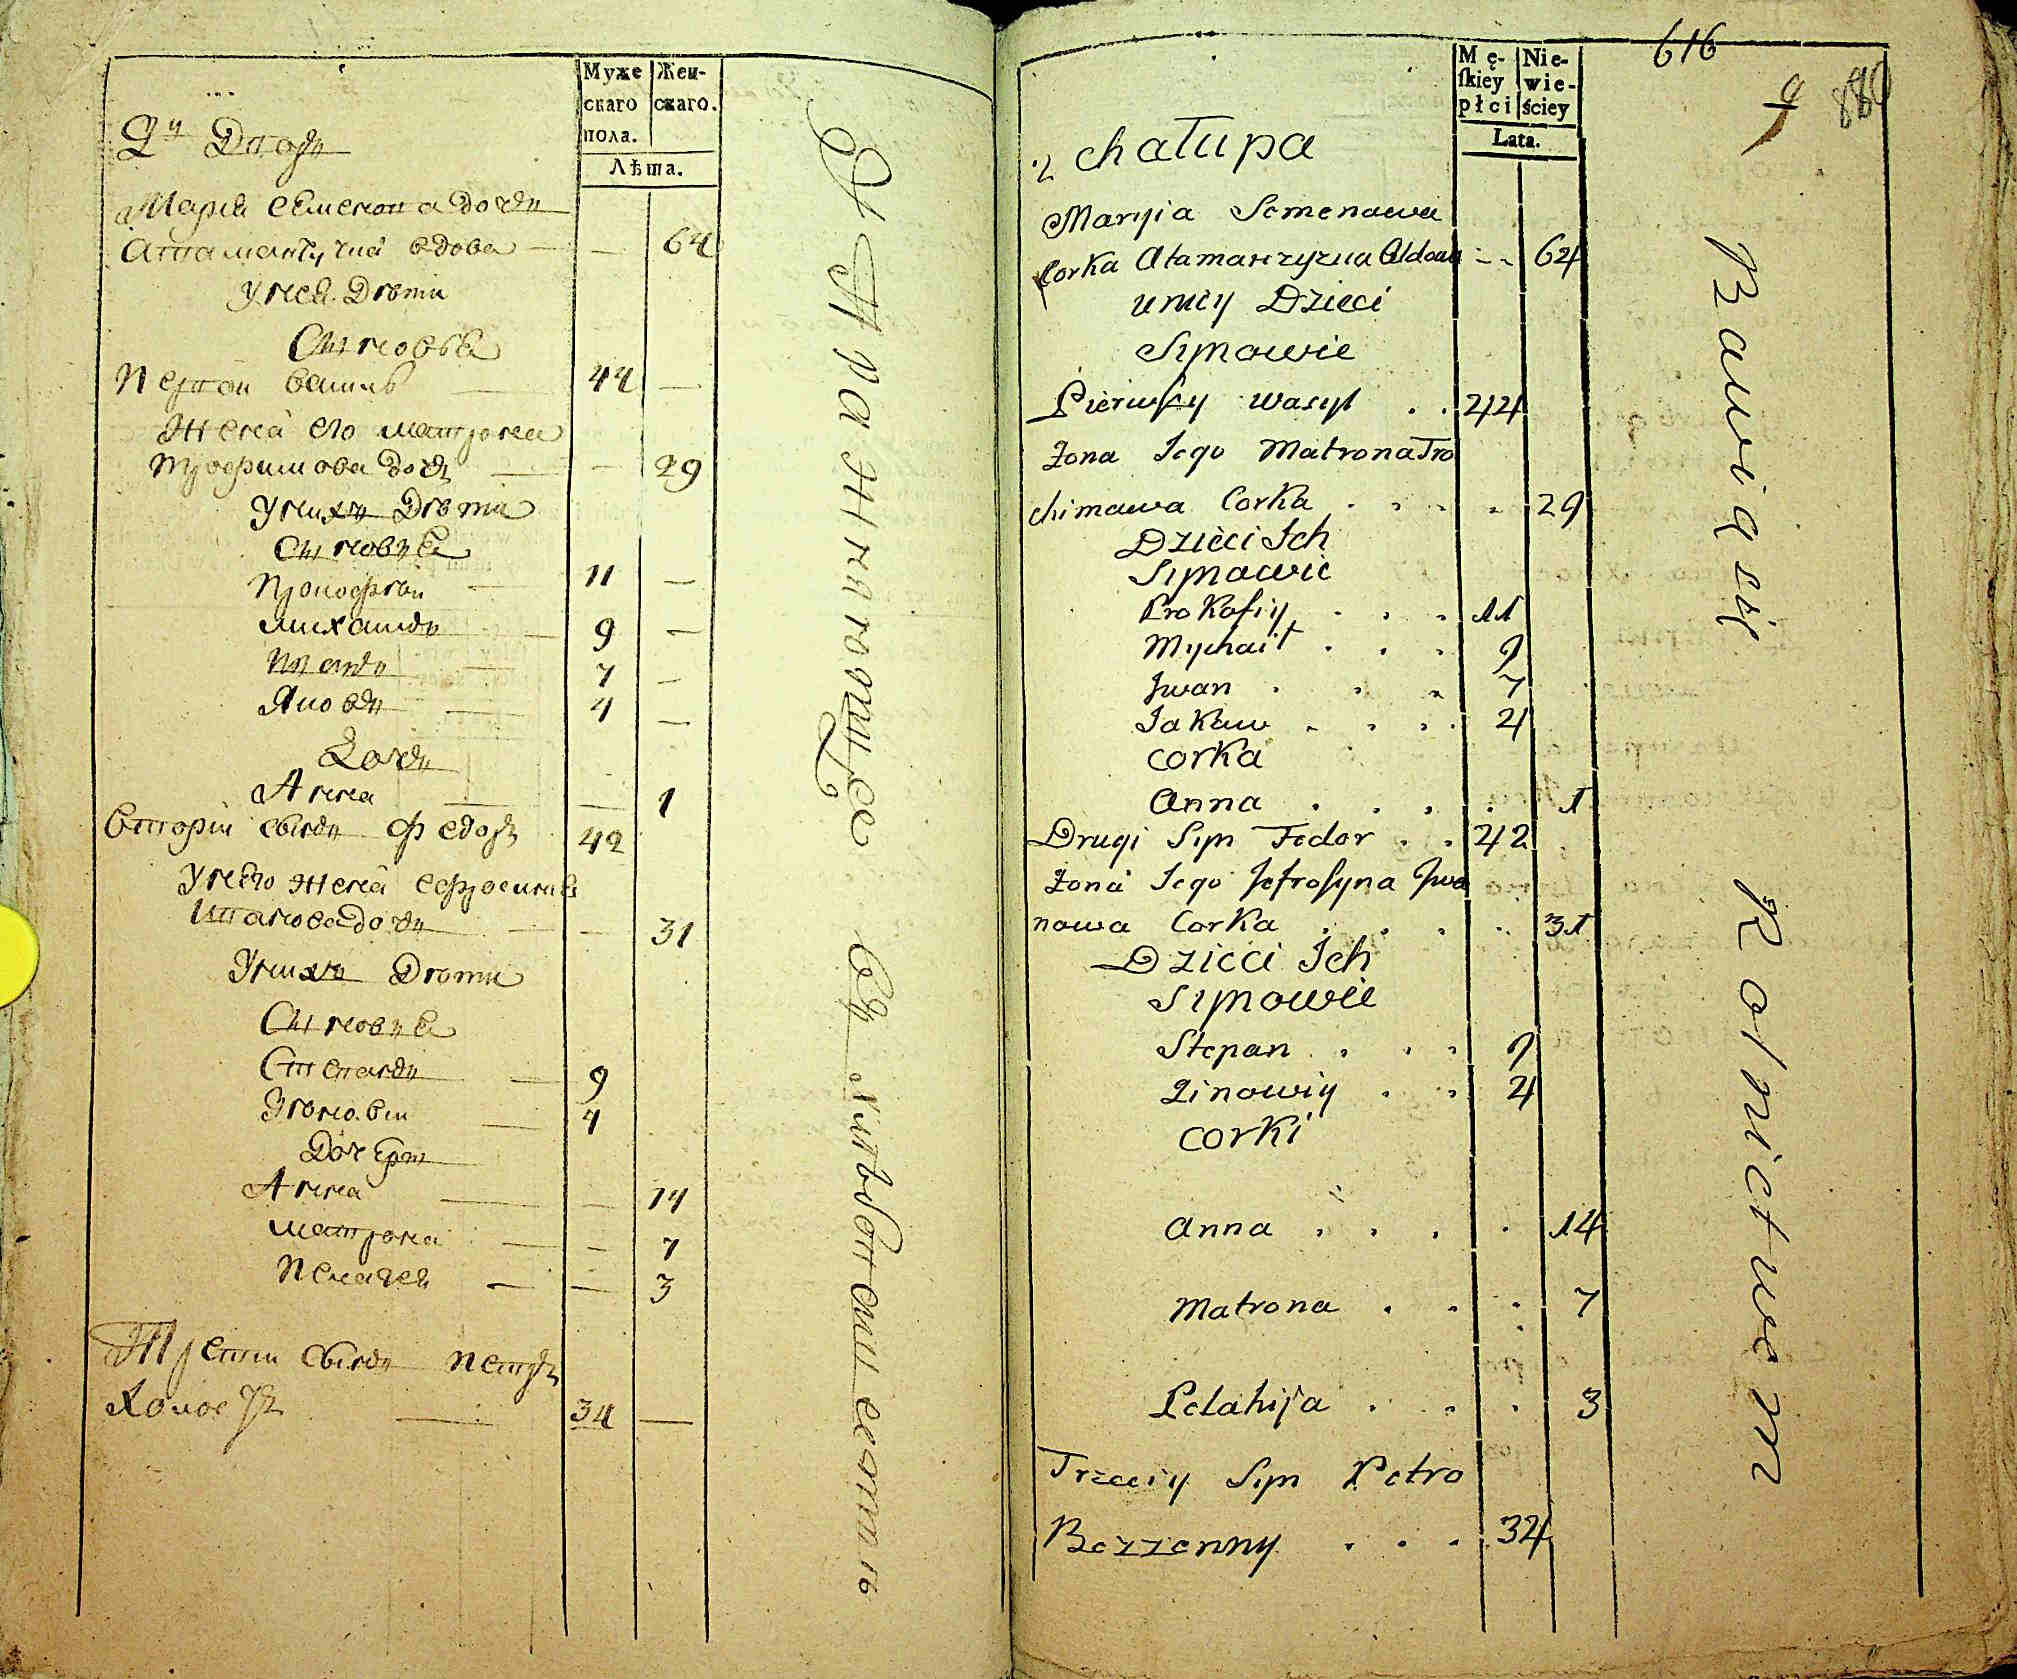 Муже
скаго
пола.
Жен-
скаго.
Лѣта.
2й Дворъ
Марія Семенова дочь
Атаманчучна вдова — — 64
У нея Дѣти
Сыновья
Первой василь — 44 —
Жена его матрона
трофимова дочь — — 29
У нихъ Дѣти
Сыновья
Прокофей — 11 —
михаилъ — 9 —
Иванъ — 7 —
Яковъ — 4 —
Дочь
Анна — — 1
Вторій сынъ Федоръ 42
У него жена ефросинья
Иванова дочь — — 31
У нихъ Дѣти
Сыновья
Степанъ — 9
Зѣновии — 4
Дочери
Анна — — 14
матрона — — 7
Пелагея — — 3
Третіи сынъ петръ
Холостъ — 34 —
Упражняются въ хлѣбопашествѣ
616
9
880
Mę-
ſkiey
płci
Nie-
wie-
ściey
Lata.
2 chałupa
Maryia Semenowa
Corka Atamanczyzna Wdowa - - 64
u niey Dzieci
Synowie
Pierwszy wasyl . . 44
Żona Jego Matrona Tro
chimowa Corka . . . . 29
Dzieci Ich
Synowie
Prokofiy . . . 11
Mychaił . . . 9
Jwan . . . 7
Jakow . . . . 4
corka
Anna . . . . . 1
Drugi Syn Fedor . . 42
Żona Jego Jefrosyna Jwa
nowa Corka . . . . 31
Dzieci Ich
Synowie
Stepan . . . 9
Zinowiy . . 4
corki
Anna . . . . 14
Matrona . . . 7
Pelahija . . . 3
Trzeciy Syn Petro
Bezzenny . . . 34
Bawią się Rolnictwem